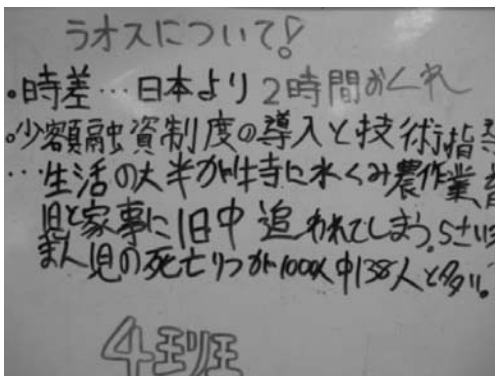 ラオスについて!
・時差…日本より2時間おくれ
・少額融資制度の導入と技術指導
…生活の大半が特に水くみ農作業育
児と家事に1日中追われてしまう。5さい
まん児の死亡りつが1000人中138人と多い。
4班